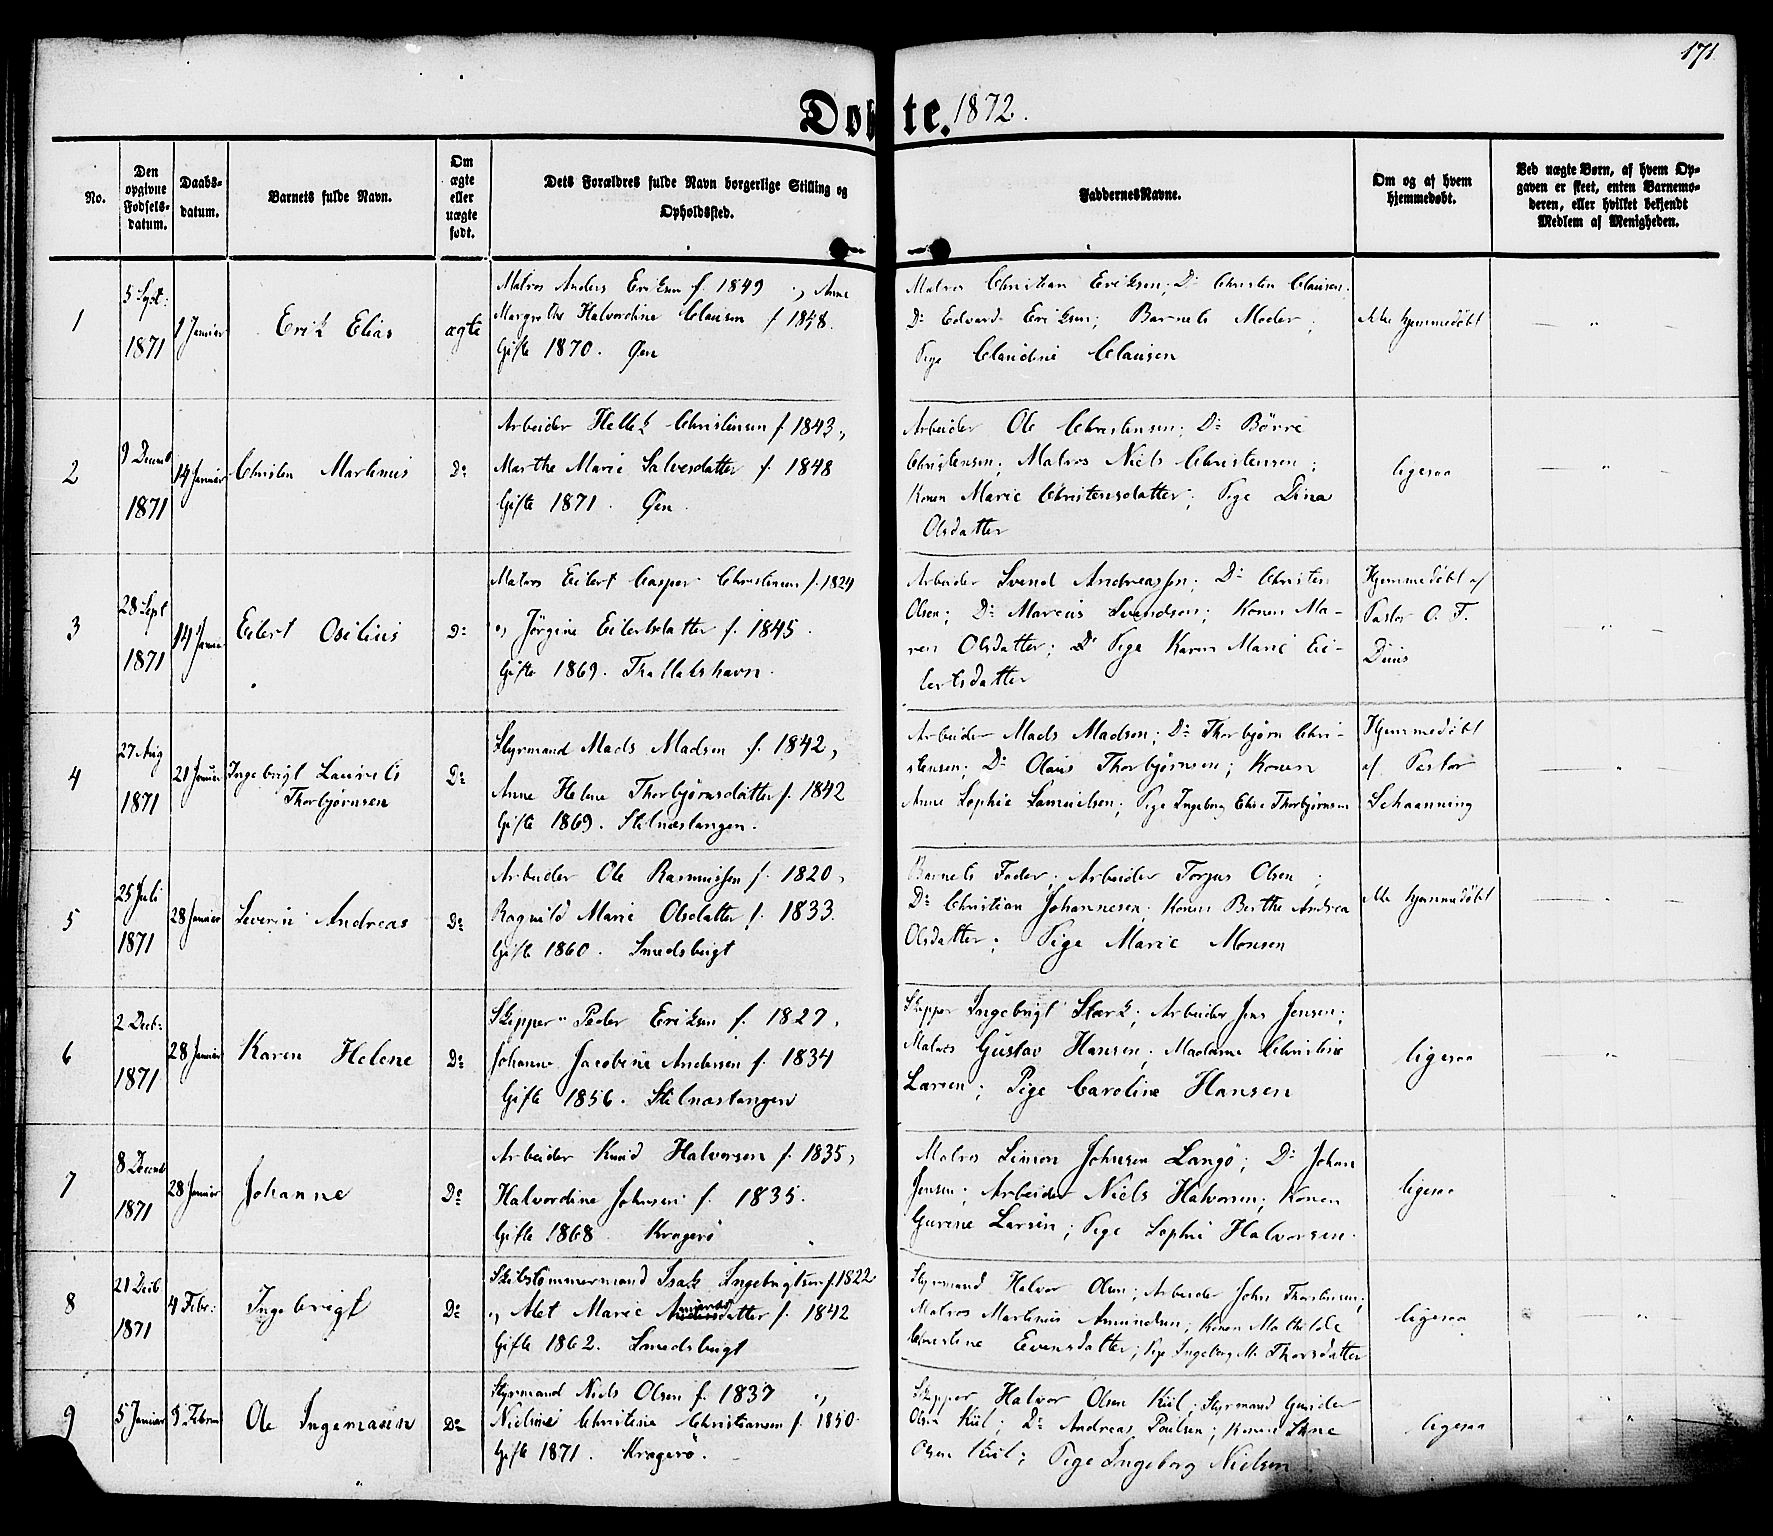 171.
Døbte. 1872.
No.
Den opgivne Fødsels-datum.
Daabs-datum.
Barnets fulde Navn.
Om ægte eller uægte født.
Dets Forældres fulde Navn borgerlige Stilling og Opholdssted.
Faddernes Navne.
Om og af hvem hjemmedøbt.
Ved uægte Børn, af hvem Op-
gaven er skeet, enten Barnemo-
deren, eller hvilket bekjendt
Medlem af Menigheden.
1
5 Sept: 1871
1 Januar
Erik Elias
ægte
Matros Anders Eriksen f. 1849 og Anne
Margrethe Halvordine Clausen f 1848.
Gifte 1870. Øen
Matros Christian Eriksen; Do Christen Clausen.
Do Edvard Eriksen; Barnets Moder;
Pige Claudine Clausen
ikke hjemmedøbt
2
9 Decemb 1871
14 Januar
Christen Martinius
Do
Arbeider Hellek Christensen f 1843,
Marthe Marie Salvesdatter f. 1848
Gifte 1871. Øen.
Arbeider Ole Christensen; Do Börre
Christensen; Matros Niels Christensen;
Konen Marie Christensdatter; Pige Dina
Olsdatter
ligesaa
3
28 Sept 1871
14 Januar
Eilert Osilius
Do
Matros Eilert Casper Christensen f. 1824
og Jörgine Eilertsdatter f. 1845.
Gifte 1869. Thallakshavn.
Arbeider Svend Andreassen; Do Christen
Olsen; Do Marcus Svendsen; Konen Ma-
ren Olsdatter; Pige Karen Marie Ei-
lertsdatter
Hjemmedøbt af
Pastor O. F.
Duus
4
27 Aug 1871
21 Januar
Ingebrigt Laurits
Thorbjørnsen
Do
Styrmand Mads Madsen f. 1842,
Anne Helene Thorbjørnsdatter f. 1842
Gifte 1869. Stilnæstangen.
Arbeider Mads Madsen; Do Thorbjørn Chri-
stensen; Do Olaus Thorbjørnsen; Konen
Anne Sophie Samuelsen; Pige Ingeborg Elise Thorbjørnsen
Hjemmedøbt
af Pastor
Schaanning
5
25 Juli 1871
28 Januar
Severin Andreas
Do
Arbeider Ole Rasmussen f. 1820,
Ragnild Marie Olsdatter f. 1833.
Gifte 1860. Smedsbugt
Barnets Fader; Arbeider Torjus Olsen;
Do Christian Johannesen; Konen Berthe Andrea
Olsdatter; Pige Marie Monsen
ikke hjemmedøbt
6
2 Decb: 1871
28 Januar
Karen Helene
Do
Skipper Peder Eriksen f. 1827,
Johanne Jacobine Andersen f. 1834
Gifte 1856. Stilnæstangen
Skipper Ingebrigt Stærk; Arbeider Jens Jensen;
Matros Gustav Hansen; Madame Christine
Larsen; Pige Caroline Hansen
ligesaa
7
8 Decemb 1871
28 Januar
Johanne
Do
Arbeider Knud Halvorsen f. 1835,
Halvordine Johnsen f. 1835.
Gifte 1868. Kragerö
Matros Simon Johnsen Langö; Do Johan
Jensen; Arbeider Niels Halvorsen; Konen
Gurine Larsen; Pige Sophie Halvorsen.
ligesaa
8
21 Decb 1871
4 Febr:
Ingebrigt
Do
Skibstömmermand Isak Ingebrigtsen f. 1822
og Met Marie datter f. 1842
Gifte 1862. Smedsbugt
Styrmand Halvor Olsen; Arbeider John Thorstensen;
Matros Martinius Amundsen; Konen Mathilde
Christine Evensdatter; Pige Ingeborg M. Thorsdatter
ligesaa
9
5 Januar
Ole Ingemann
Do
Styrmand Niels Olsen f. 1837 og
Nicline Christine Christiansen f. 1850.
Gifte 1871. Kragerö.
Skipper Halvor Olsen Kiil; Styrmand Gunder
Olsen Kiil; Do Andreas Poulsen; Konen Stine
Olsen Kiil; Pige Ingeborg Nielsen
ligesaa